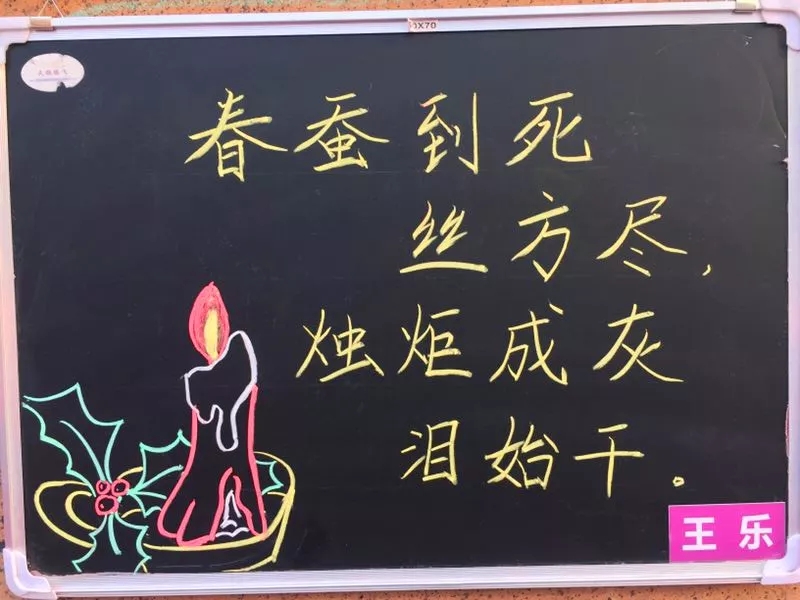 春蚕到死
丝方尽,
烛炬成灰
泪始干。
王乐